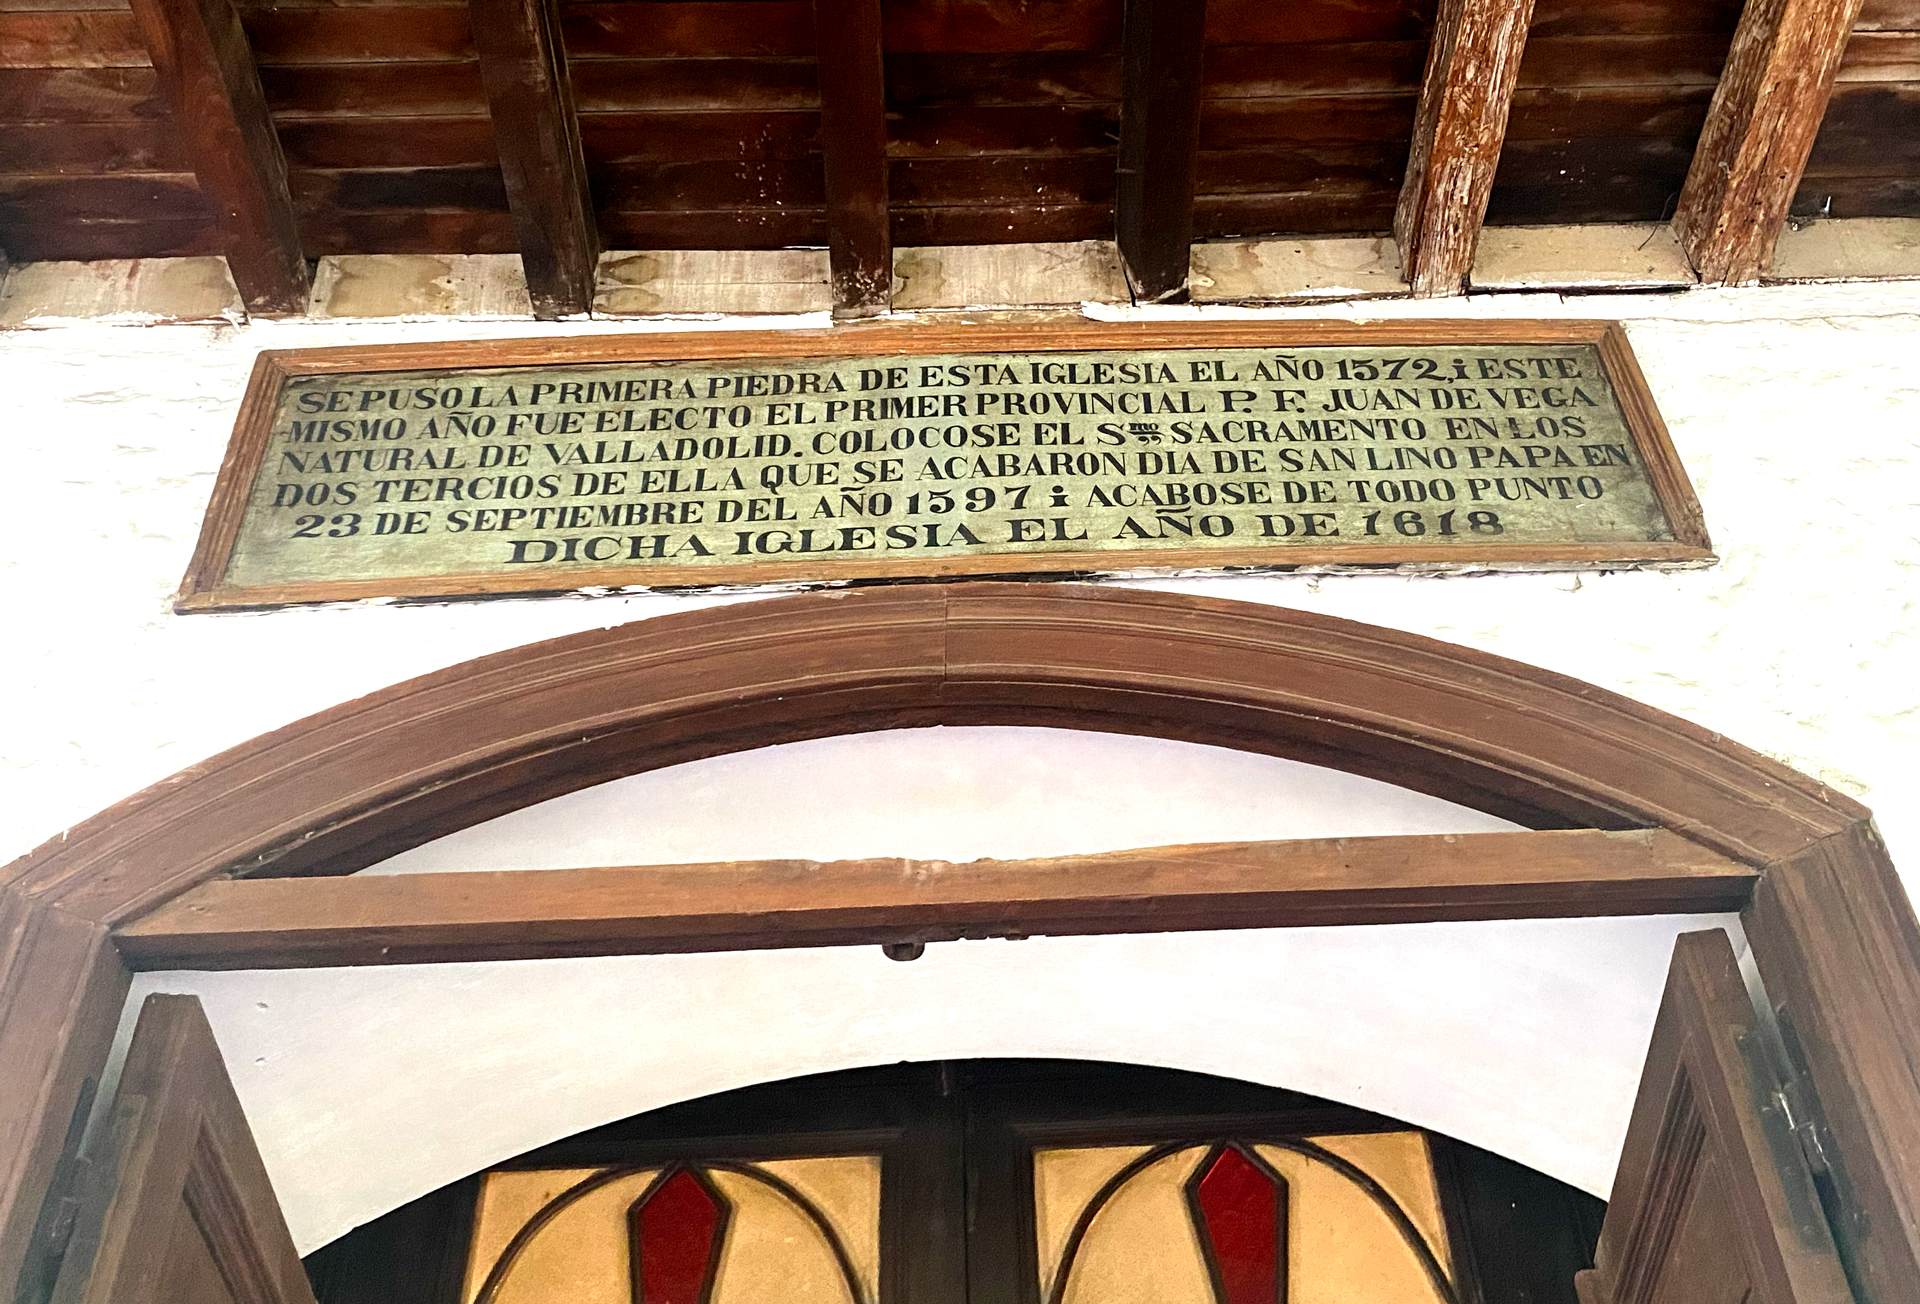 SE PUSO LA PRIMERA PIEDRA DE ESTA IGLESIA EL AÑO 1572, i ESTE
MISMO AÑO FUE ELECTO EL PRIMER PROVINCIAL P. F. JUAN DE VEGA
NATURAL DE VALLADOLID. COLOCOSE EL Smo SACRAMENTO EN LOS
DOS TERCIOS DE ELLA QUE SE ACABARON DIA DE SAN LINO PAPA EN
23 DE SEPTIEMBRE DEL AÑO 1597 i ACABOSE DE TODO PUNTO
DICHA IGLESIA EL AÑO DE 1618